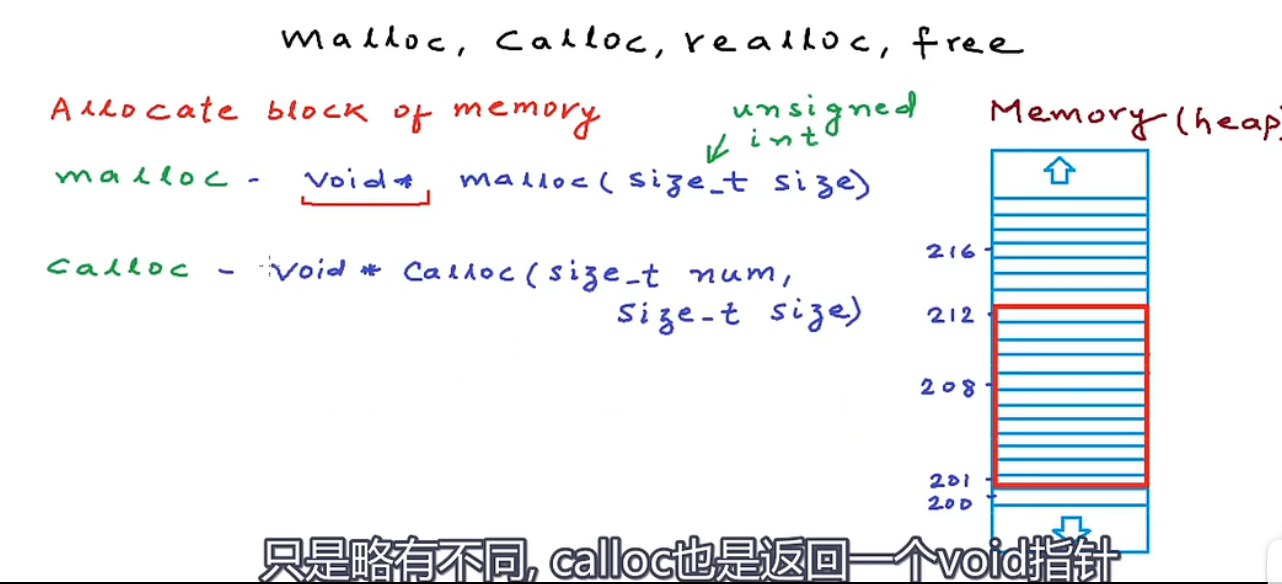 malloc, calloc, realloc, free
Allocate block of memory
unsigned
int
malloc - void* malloc(size_t size)
calloc - void * calloc(size_t num,
size_t size)
Memory (heap)
216
212
208
201
200
只是略有不同, calloc也是返回一个void指针